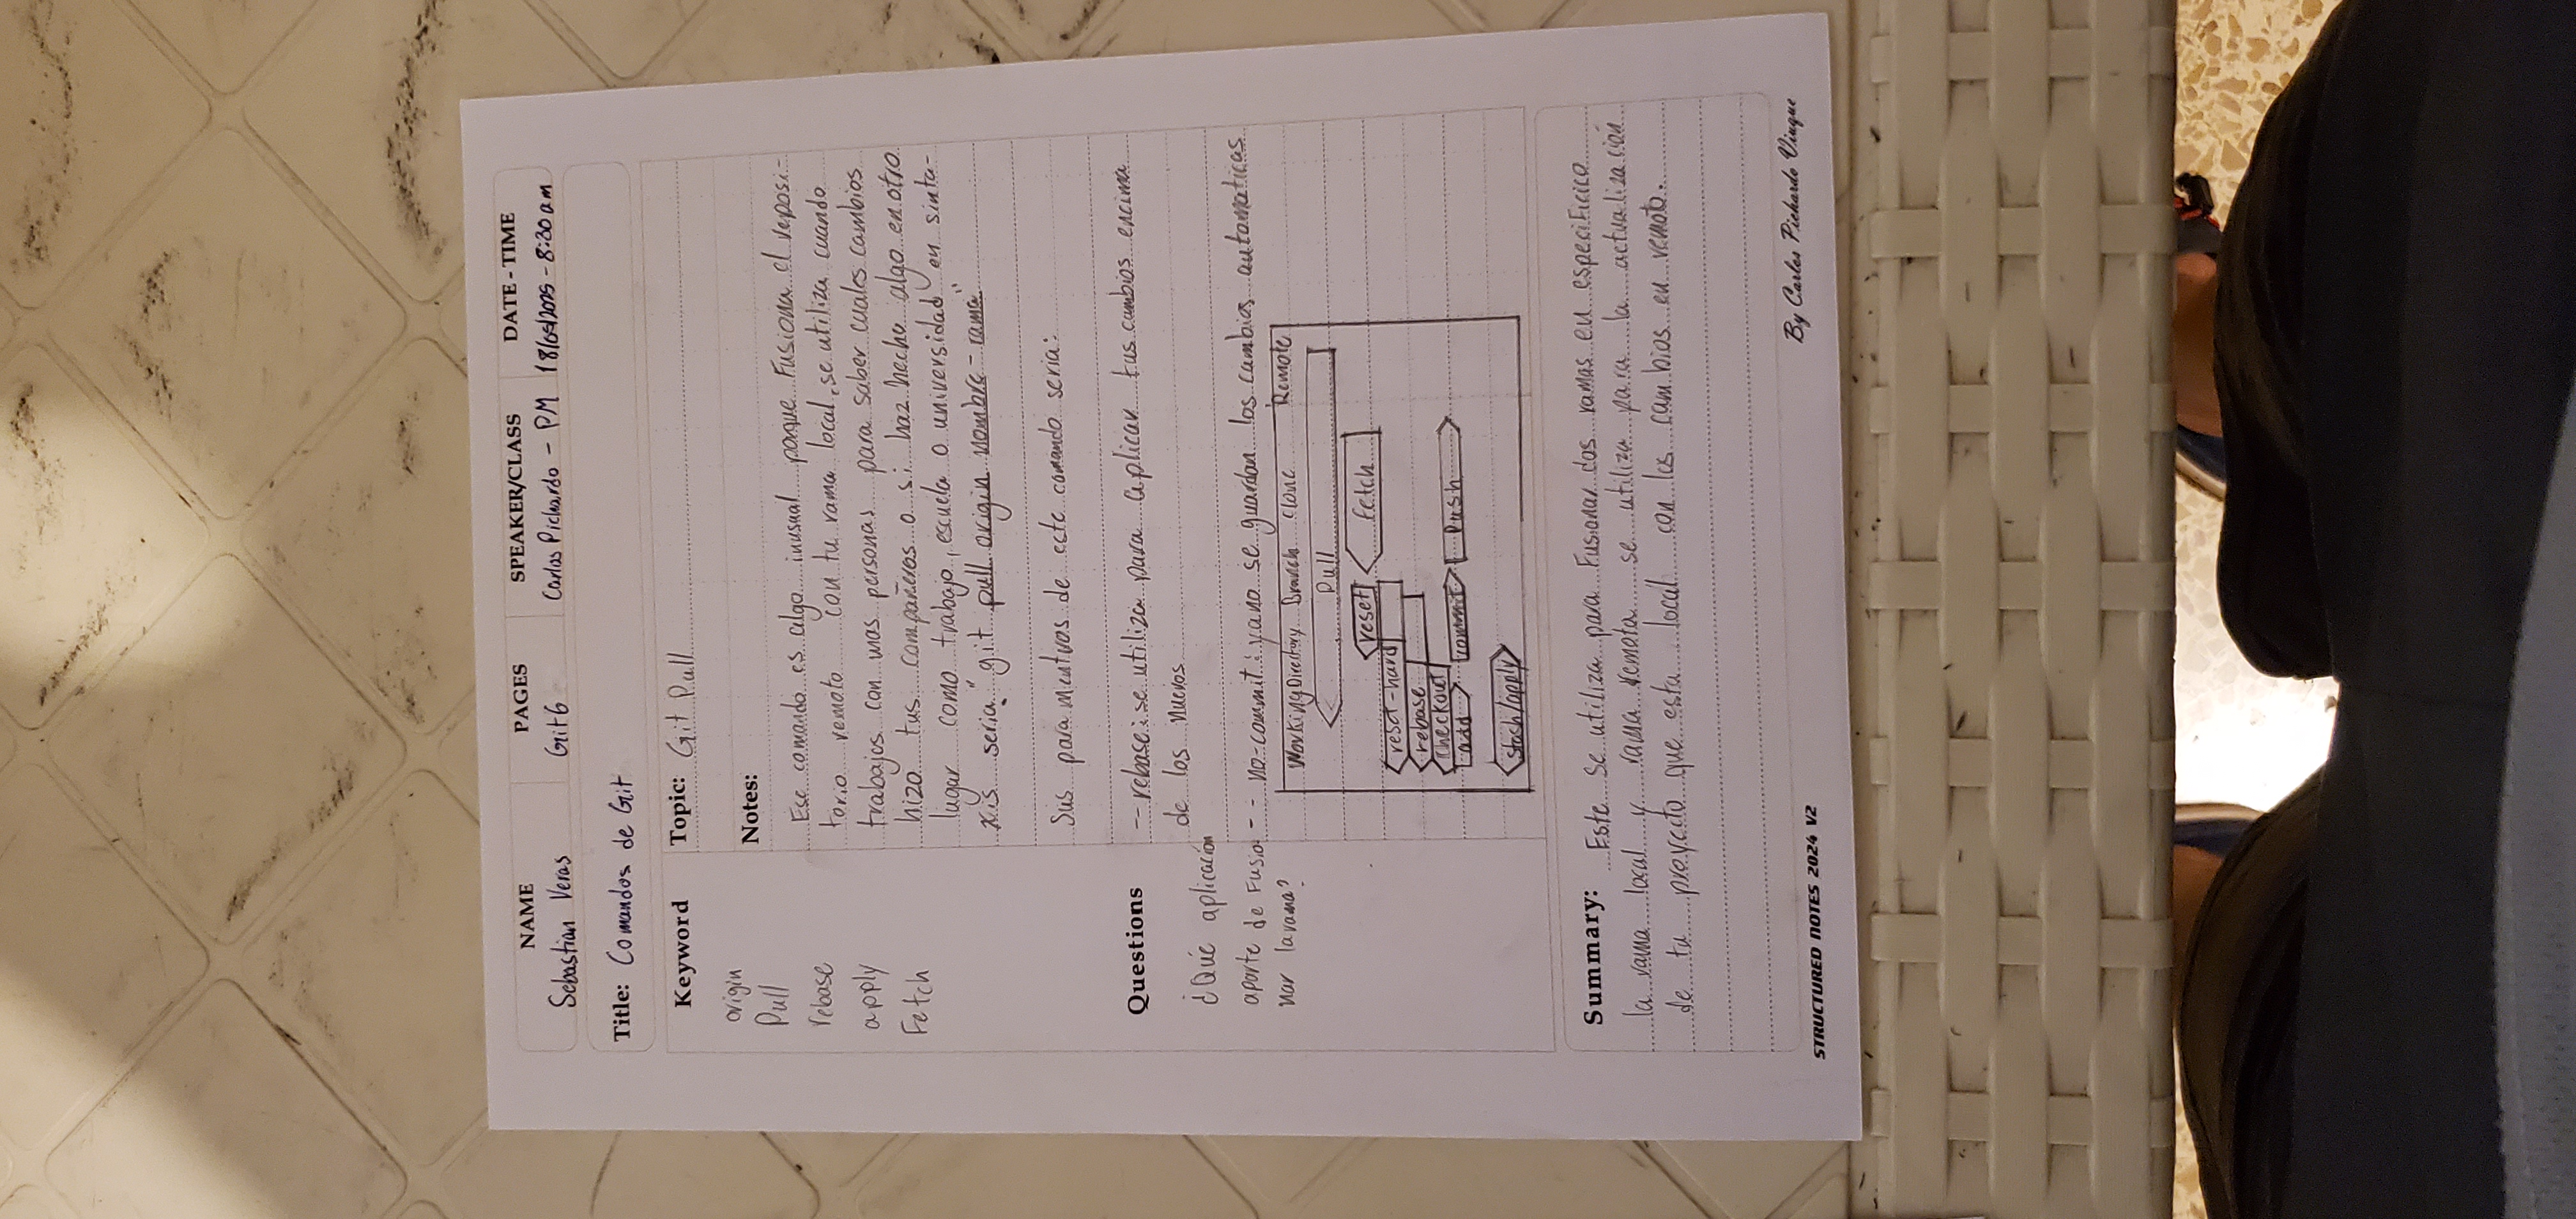 NAME PAGES SPEAKER/CLASS DATE - TIME
Sebastian Veras Git6 Carlos Pichardo - PM 18/05/2025 - 8:30 am
Title: Comandos de Git
Keyword
origin
Pull
rebase
apply
Fetch
Questions
¿Qué aplicación
aporte de Fusio
nar la rama?
Topic: Git Pull
Notes:
Ese comando es algo inusual porque Fusiona el reposi-
torio remoto con tu rama local, se utiliza cuando
trabajas con mas personas para saber cuales cambios
hizo tus compañeros o si haz hecho algo en otro
lugar como trabajo, escuela o universidad en sinta-
xis seria "git pull origin nombre-rama"
Sus paramentros de este comando seria:
-- rebase: se utiliza para aplicar tus cambios encima
de los nuevos
-- no-commit: ya no se guardan los cambios automaticas
Working Directory Branch Clone Remote
Pull
reset Fetch
reset-hard
rebase
checkout
add commit Push
stash/apply
Summary: Este se utiliza para Fusionar dos ramas en especificico
la rama local y rama remota se utiliza para la actualización
de tu proyecto que esta local con los cambios en remoto.
STRUCTURED NOTES 2024 V2
By Carlos Pichardo Viuque